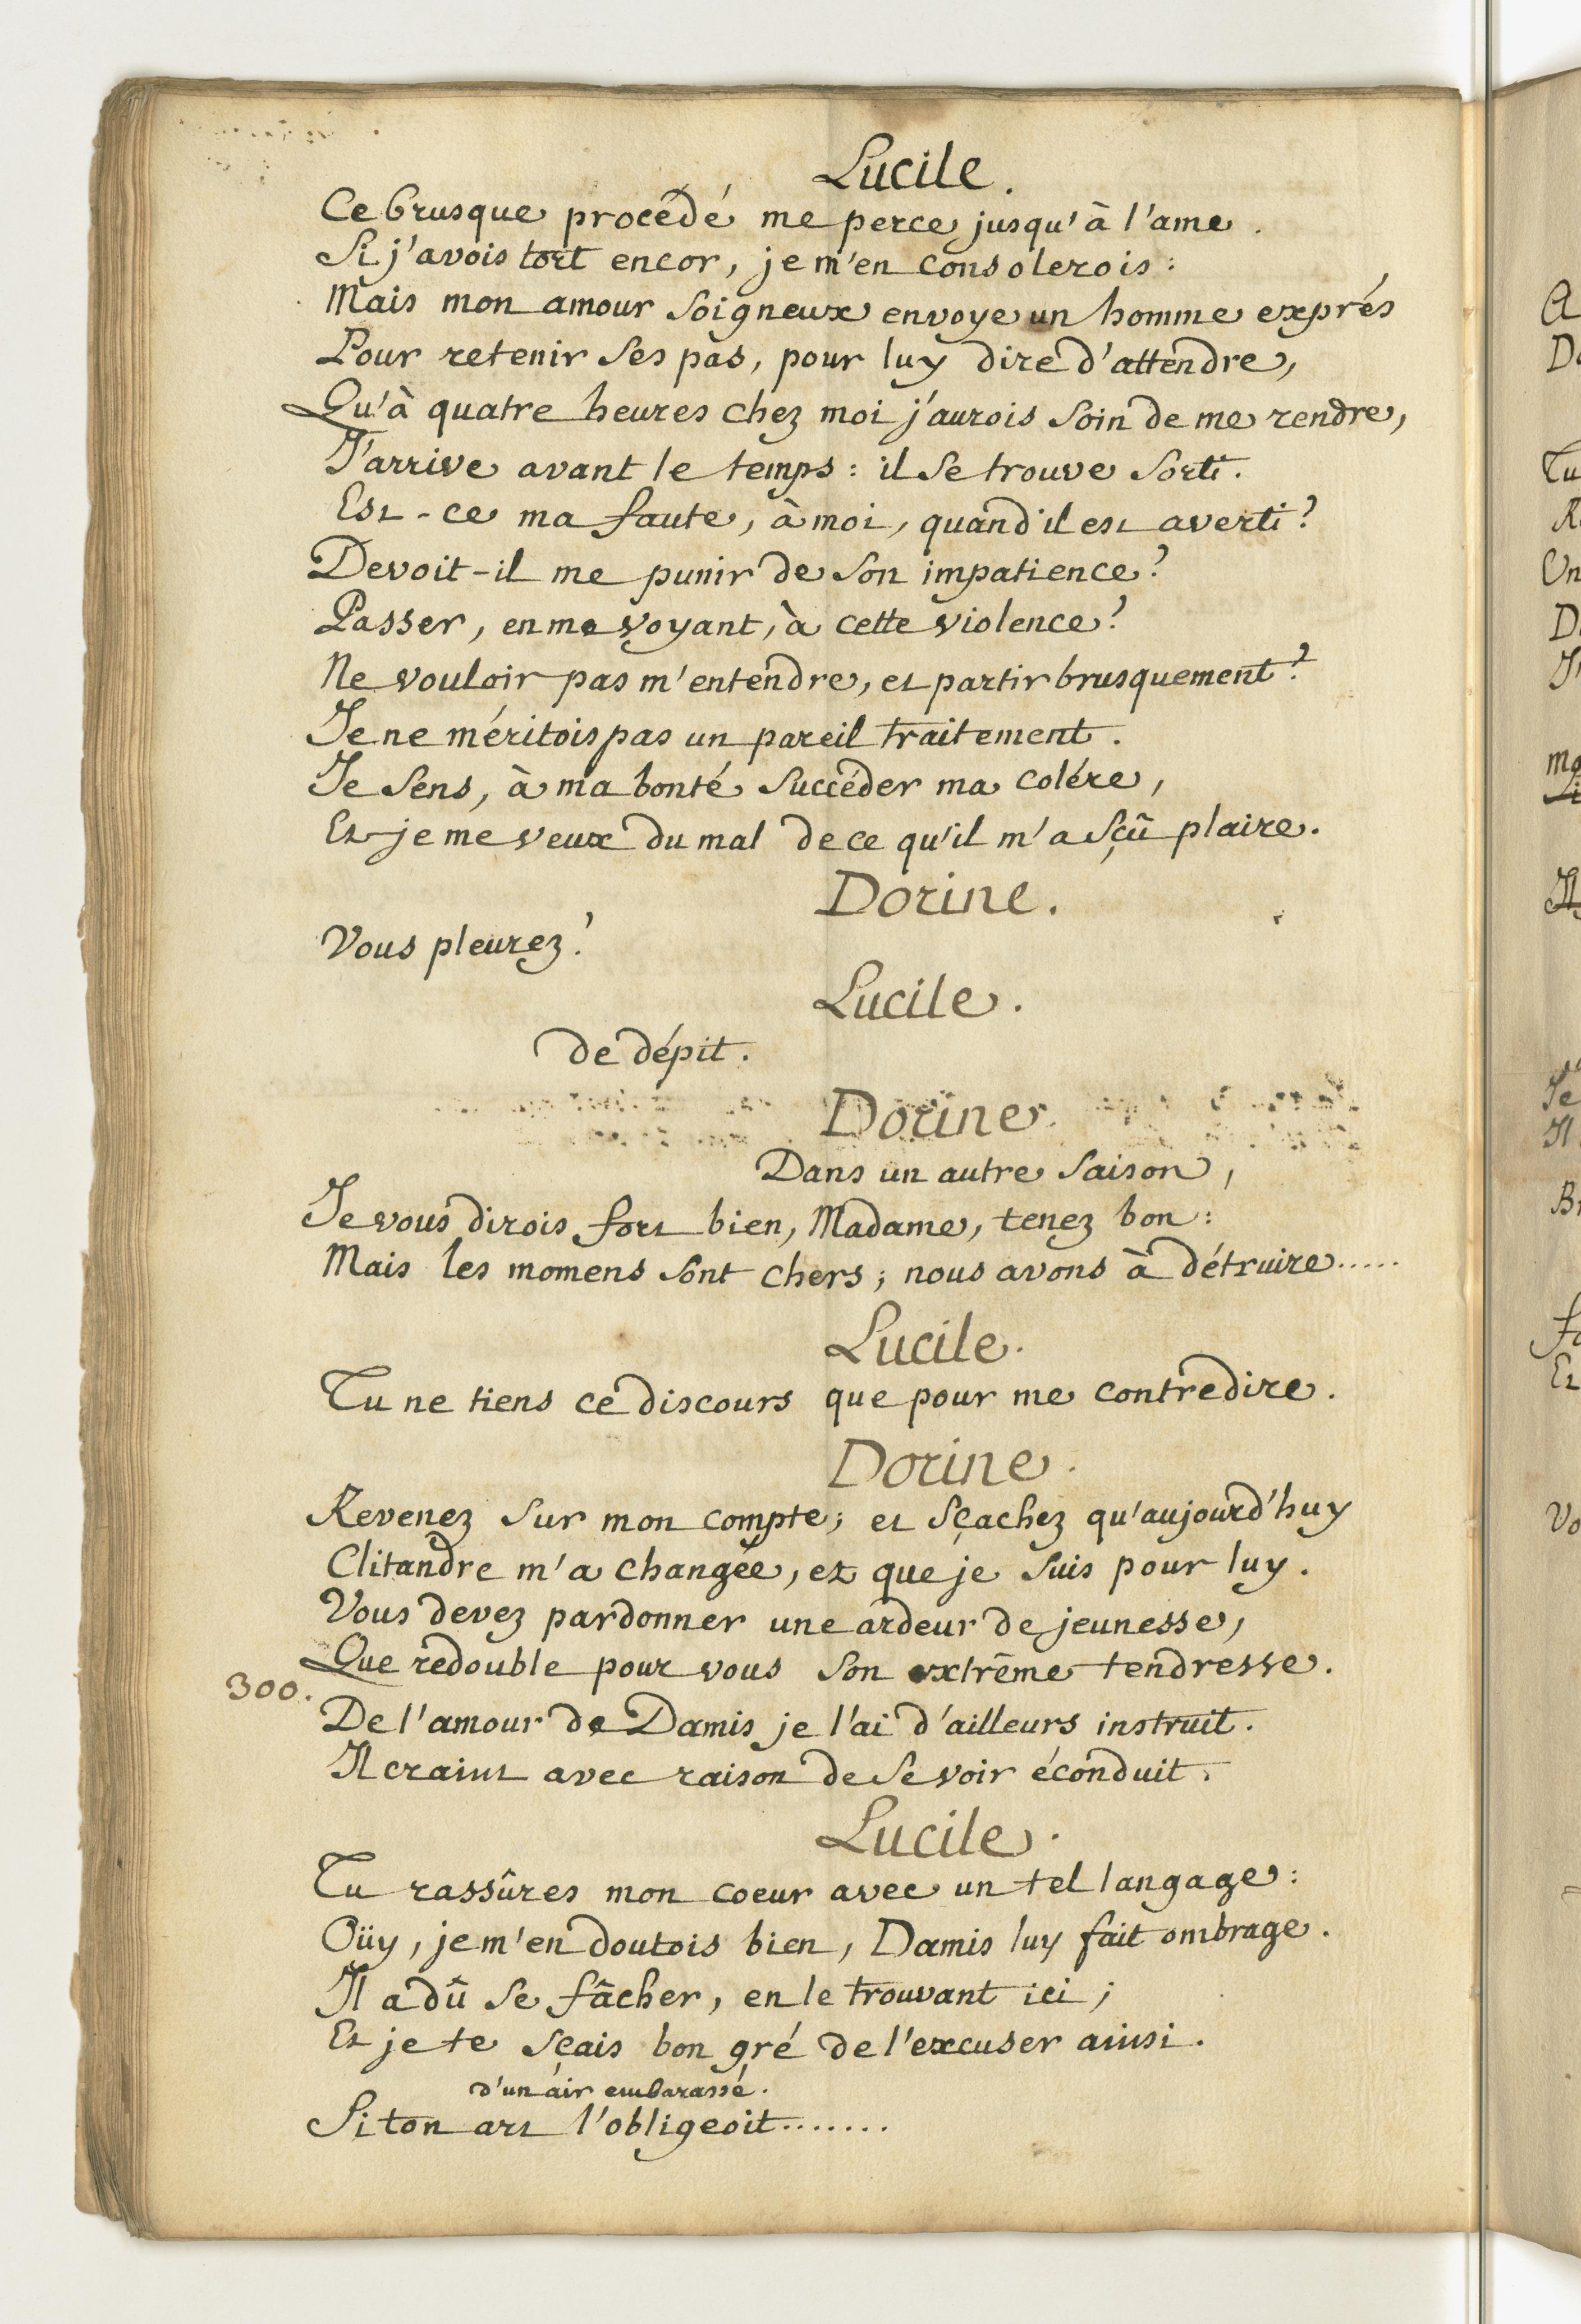 Lucile.
Ce brusque procédé me perce jusqu'à l'ame.
Si j'avois tort encor, je m'en consolerois:
Mais mon amour soigneux envoye un homme exprés
Pour retenir ses pas, pour luy dire d'attendre,
Qu'à quatre heures chez moi j'aurois soin de me rendre,
J'arrive avant le temps: il se trouve sorti.
Est-ce ma faute, à moi, quand il est averti?
Devoit-il me punir de son impatience?
Passer, en me voyant, à cette violence?
Ne vouloir pas m'entendre, et partir brusquement?
Je ne méritois pas un pareil traitement.
Je sens, à ma bonté succéder ma colére,
Et je me veux du mal de ce qu'il m'a sçû plaire.
Dorine.
Vous pleurez?
Lucile.
de dépit.
Dorine.
Dans un autre saison,
Je vous dirois fort bien, Madame, tenez bon:
Mais les momens sont chers; nous avons à détruire.....
Lucile.
Tu ne tiens ce discours que pour me contredire.
Dorine.
Revenez sur mon compte; et sçachez qu'aujourd'huy
Clitandre m'a changée, et que je suis pour luy.
Vous devez pardonner une ardeur de jeunesse,
Que redouble pour vous son extrême tendresse.
300.
De l'amour de Damis je l'ai d'ailleurs instruit.
Il craint avec raison de se voir éconduit.
Lucile.
Tu rassûres mon coeur avec un tel langage:
Oüy, je m'en doutois bien, Damis luy fait ombrage.
Il a dû se fâcher, en le trouvant ici;
Et je te sçais bon gré de l'excuser ainsi.
d'un air embarassé.
Si ton art l'obligeoit.......